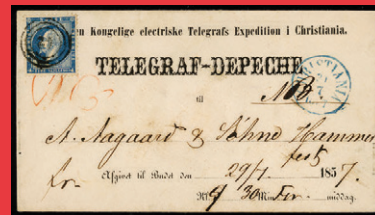 n Kongelige electriske Telegrafs Expedition i Christiania.
TELEGRAF-DEPECHE
til
A. Aagaard & Söhne Hammer
fest
Afgivet til Budet den 29/1 1857.
Kl. 9 30 M. For middag.